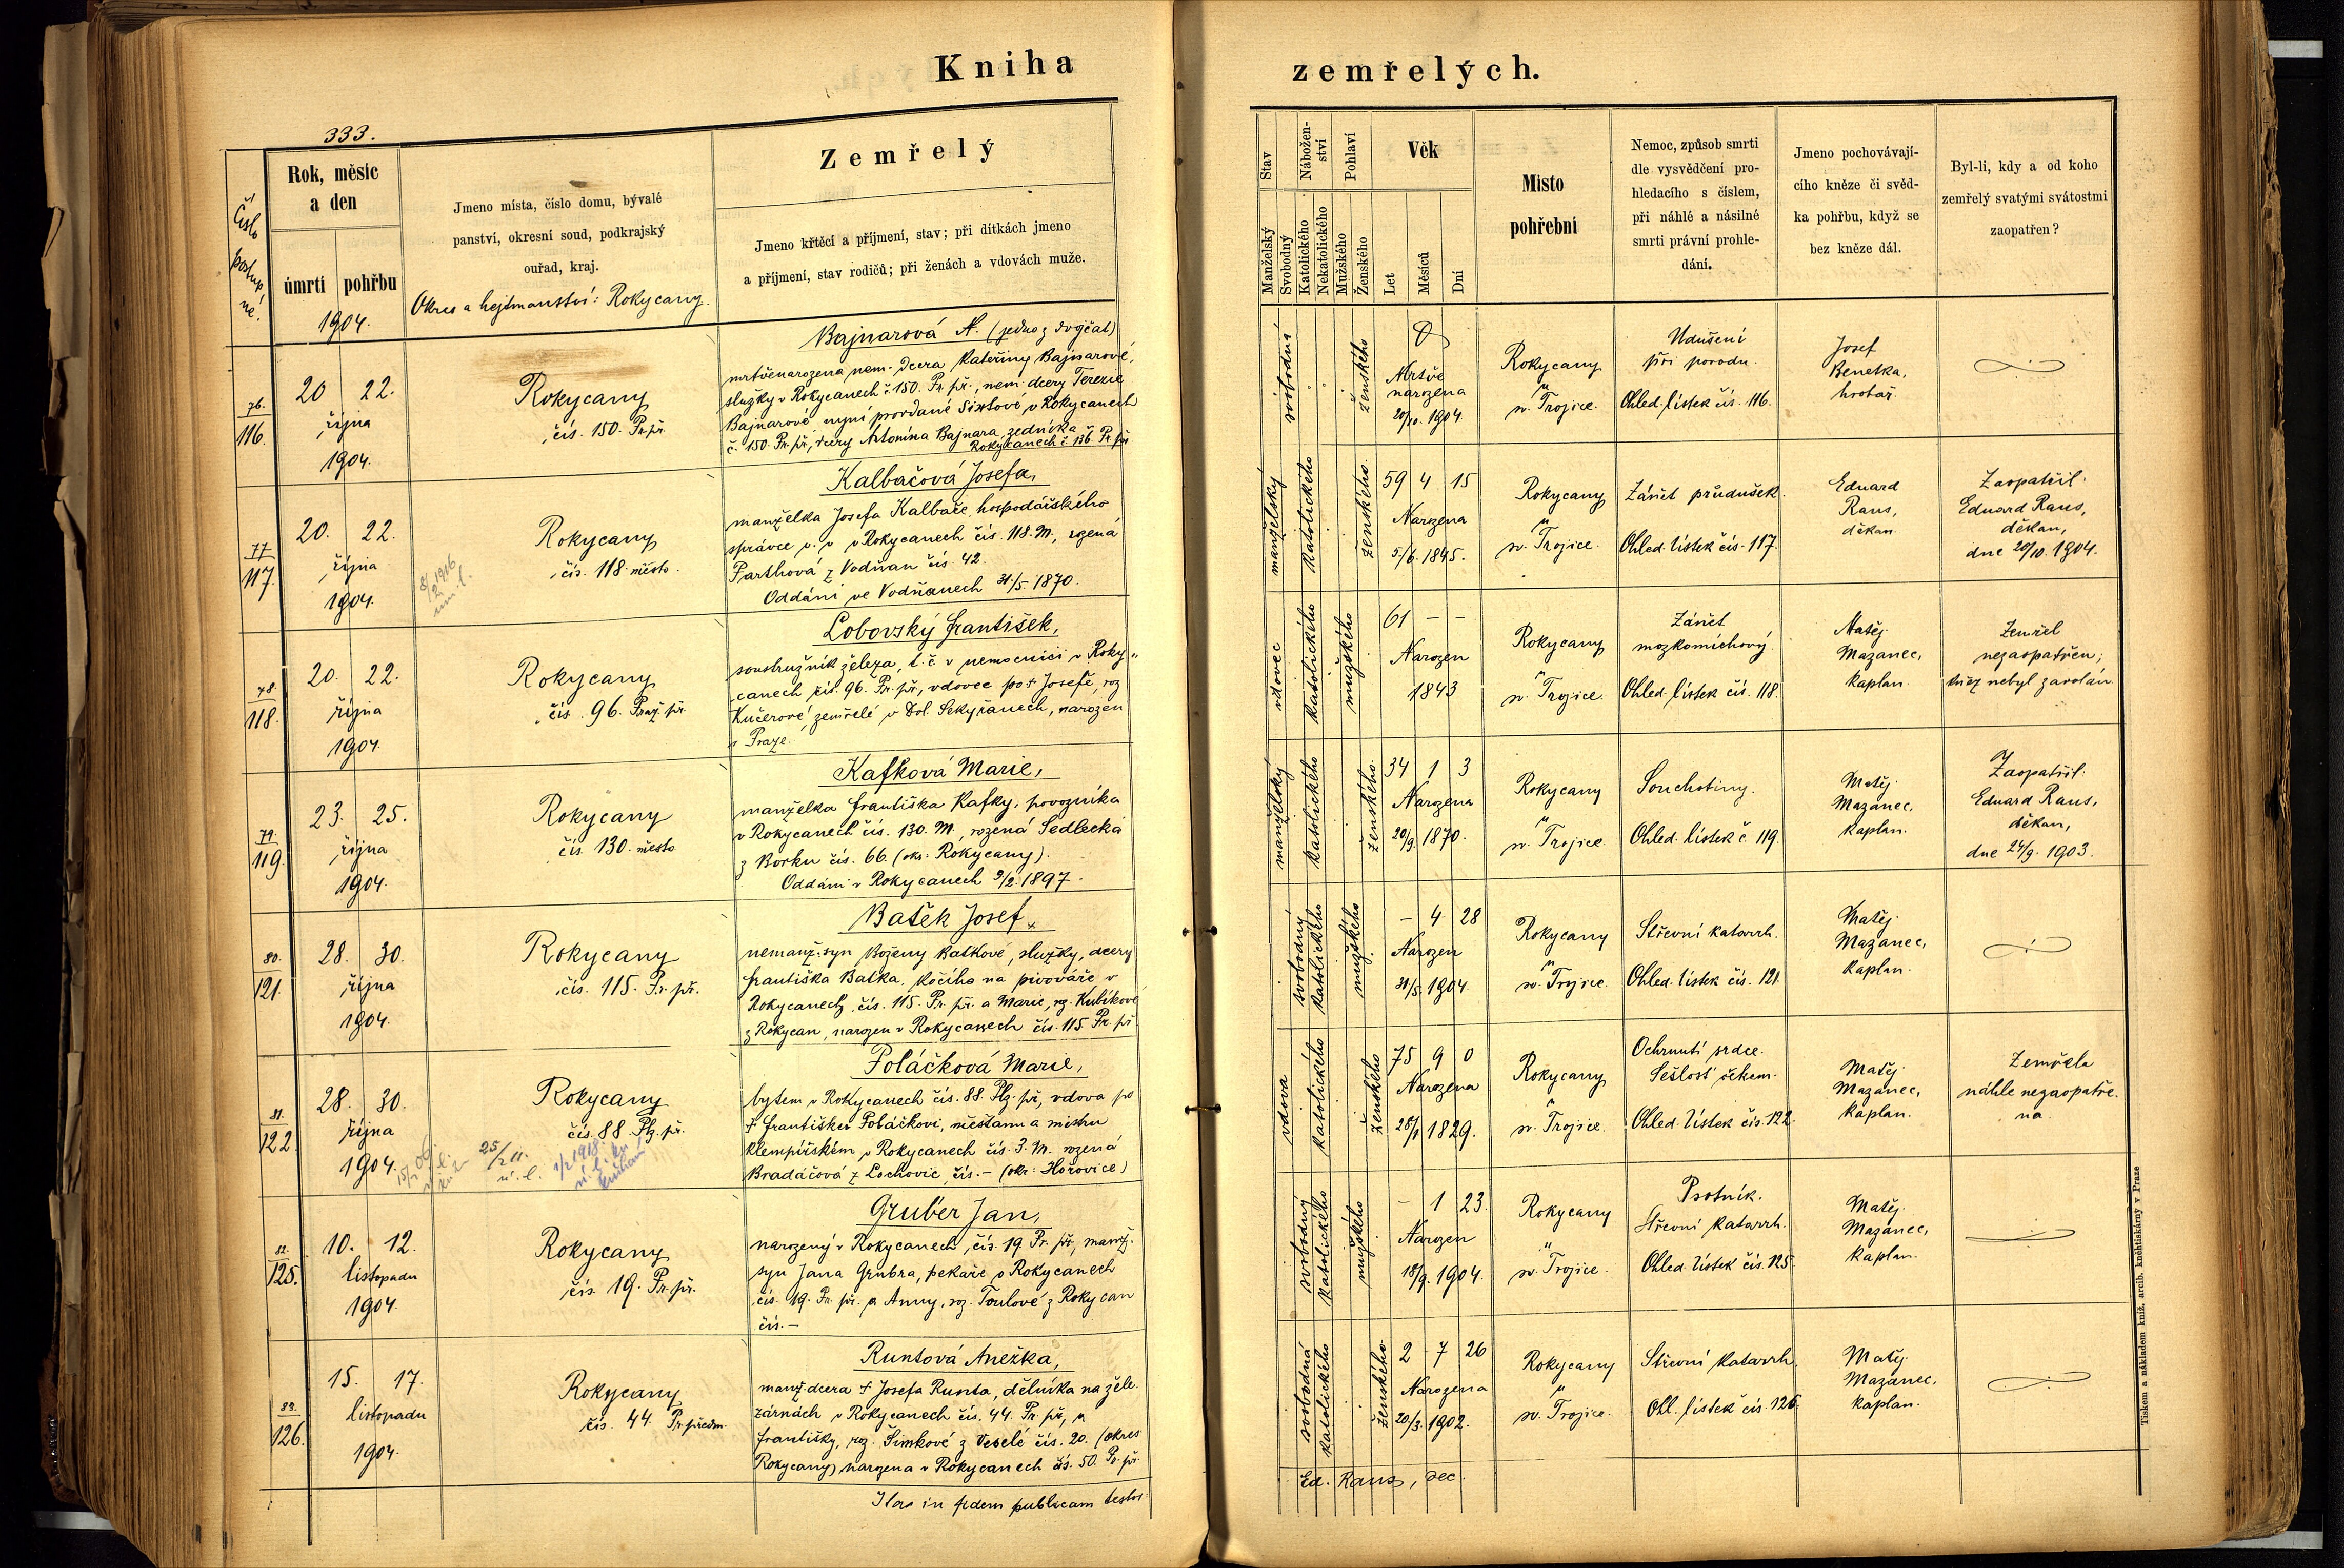 Kniha
zemřelých.
333.
Číslo
postup
né.
Rok, měsíc
a den
úmrtí
pohřbu
1904.
Jmeno místa, číslo domu, bývalé
panství, okresní soud, podkrajský
ouřad, kraj.
Okres a hejtmanství: Rokycany.
Zemřelý
Jmeno křtěcí a příjmení, stav; při dítkách jmeno
a příjmení, stav rodičů; při ženách a vdovách muže.
Stav
Manželský
Svobodný
Nábožen-
ství
Katolického
Nekatolického
Pohlaví
Mužského
Ženského
Věk
Let
Měsíců
Dní
Místo
pohřební
Nemoc, způsob smrti
dle vysvědčení pro-
hledacího s číslem,
při náhlé a násilné
smrti právní prohle-
dání.
Jmeno pochovávají-
cího kněze či svěd-
ka pohřbu, když se
bez kněze dál.
Byl-li, kdy a od koho
zemřelý svatými svátostmi
zaopatřen?
76.
116.
20 22.
října
1904.
Rokycany
čís. 150. Pr. př.
Bajnarová N. (jedno z dvojčat)
mrtvěnarozena nem. dcera Kateřiny Bajnarové,
služky v Rokycanech č. 150. Pr. př., nem. dcery Terezie
Bajnarové nyní provdané Sixtové v Rokycanech
č. 150. Pr. př., dcery Antonína Bajnara, zedníka
Rokycanech č. 136. Pr. př.
svobodná
ženského
Mrtvě
narozena
20/10. 1904.
Rokycany
u
sv. Trojice.
Udušení
při porodu.
Ohled. lístek čís. 116.
Josef
Benetka,
hrobař.
77
117.
20. 22.
října
1904.
Rokycany
čís. 118. město.
Kalbačová Josefa,
manželka Josefa Kalbače, hospodářského
správce v. v. v Rokycanech čís. 118. M., rozená
Parthová z Vodňan čís. 42.
Oddáni ve Vodňanech 31/5. 1870.
manželský
katolického
ženského.
59 4 15
Narozena
5/6. 1845.
Rokycany
u
sv. Trojice.
Zánět průdušek.
Ohled. lístek čís. 117.
Eduard
Raus,
děkan.
Zaopatřil:
Eduard Raus,
děkan,
dne 20/10. 1904.
78.
118.
20. 22.
října
1904.
Rokycany
čís. 96. Praž. př.
Lobovský František,
soustružník železa, t. č. v nemocnici v Roky-
canech čís. 96. Pr. př., vdovec po † Josefě, roz.
Kučerové, zemřelé v Dol. Sekyřanech, narozen
v Praze.
vdovec
katolického
mužského
61 – –
Narozen
1843
Rokycany
u
sv. Trojice.
Zánět
mozkomíchový.
Ohled. lístek čís. 118.
Matěj
Mazanec,
kaplan.
Zemřel
nezaopatřen;
kněz nebyl zavolán.
79.
119.
23. 25.
října
1904.
Rokycany
čís. 130. město
Kafková Marie,
manželka Františka Kafky, povozníka
v Rokycanech čís. 130. M., rozená Sedlecká
z Borku čís. 66. (okr. Rokycany).
Oddáni v Rokycanech 9/2. 1897.
manželský
katolického
ženského.
34 1 3
Narozena
20/9. 1870.
Rokycany
u
sv. Trojice.
Souchotiny.
Ohled. lístek č. 119.
Matěj
Mazanec,
kaplan.
Zaopatřil:
Eduard Raus,
děkan,
dne 24/9. 1903.
80.
121.
28. 30.
října
1904.
Rokycany
čís. 115. Pr. př.
Batěk Josef,
nemanž. syn Boženy Batkové, služky, dcery
Františka Batka, kočího na pivováře v
Rokycanech čís. 115. Pr. př. a Marie, roz. Kubíkové
z Rokycan, narozen v Rokycanech čís. 115. Pr. př.
svobodný
katolického
mužského
– 4 28
Narozen
31/5. 1904.
Rokycany
u
sv. Trojice.
Střevní katarrh.
Ohled. lístek čís. 121.
Matěj
Mazanec,
kaplan.
81.
122.
28. 30.
října
1904.
Rokycany
čís. 88. Plz. př.
Poláčková Marie,
bytem v Rokycanech čís. 88. Plz. př., vdova po
† Františkev Poláčkovi, měšťanu a mistru
klempířském v Rokycanech čís. 3. M. rozená
Bradáčová z Lochovic, čís. – (okr. Hořovice)
vdova
katolického
ženského
75 9 0
Narozena
28/1 1829.
Rokycany
u
sv. Trojice.
Ochrnutí srdce.
Sešlost věkem.
Ohled. lístek čís. 122.
Matěj
Mazanec,
kaplan.
Zemřela
náhle nezaopatře-
na.
82.
125.
10. 12.
listopadu
1904.
Rokycany
čís. 19. Pr. př.
Gruber Jan,
narozený v Rokycanech čís. 19 Pr. př., manž.
syn Jana Grubra, pekaře v Rokycanech
čís. 19. Pr. př. a Anny, roz. Toulové z Rokycan
čís. –
svobodný
katolického
mužského
– 1 23.
Narozen
18/9. 1904.
Rokycany
u
sv. Trojice.
Psotník.
Střevní katarrh.
Ohled. lístek čís. 125.
Matěj
Mazanec,
kaplan.
83.
126.
15. 17.
listopadu
1904.
Rokycany
čís. 44. Pr. předm.
Runtová Anežka,
manž. dcera † Josefa Runta, dělníka na žele-
zárnách v Rokycanech čís. 44. Pr. př., a
Františky, roz. Šimkové z Veselé čís. 20. (okres
Rokycany) narozena v Rokycanech čís. 50. Pr. př.
svobodná
katolického
ženského.
2 7 26
Narozena
20/3. 1902.
Rokycany
u
sv. Trojice.
Střevní katarrh.
Ohl. lístek čís. 126.
Matěj
Mazanec,
kaplan.
in fidem publicam testor:
Ed. Raus, dec.
Tiskem a nákladem kníž. arcib. knihtiskárny v Praze